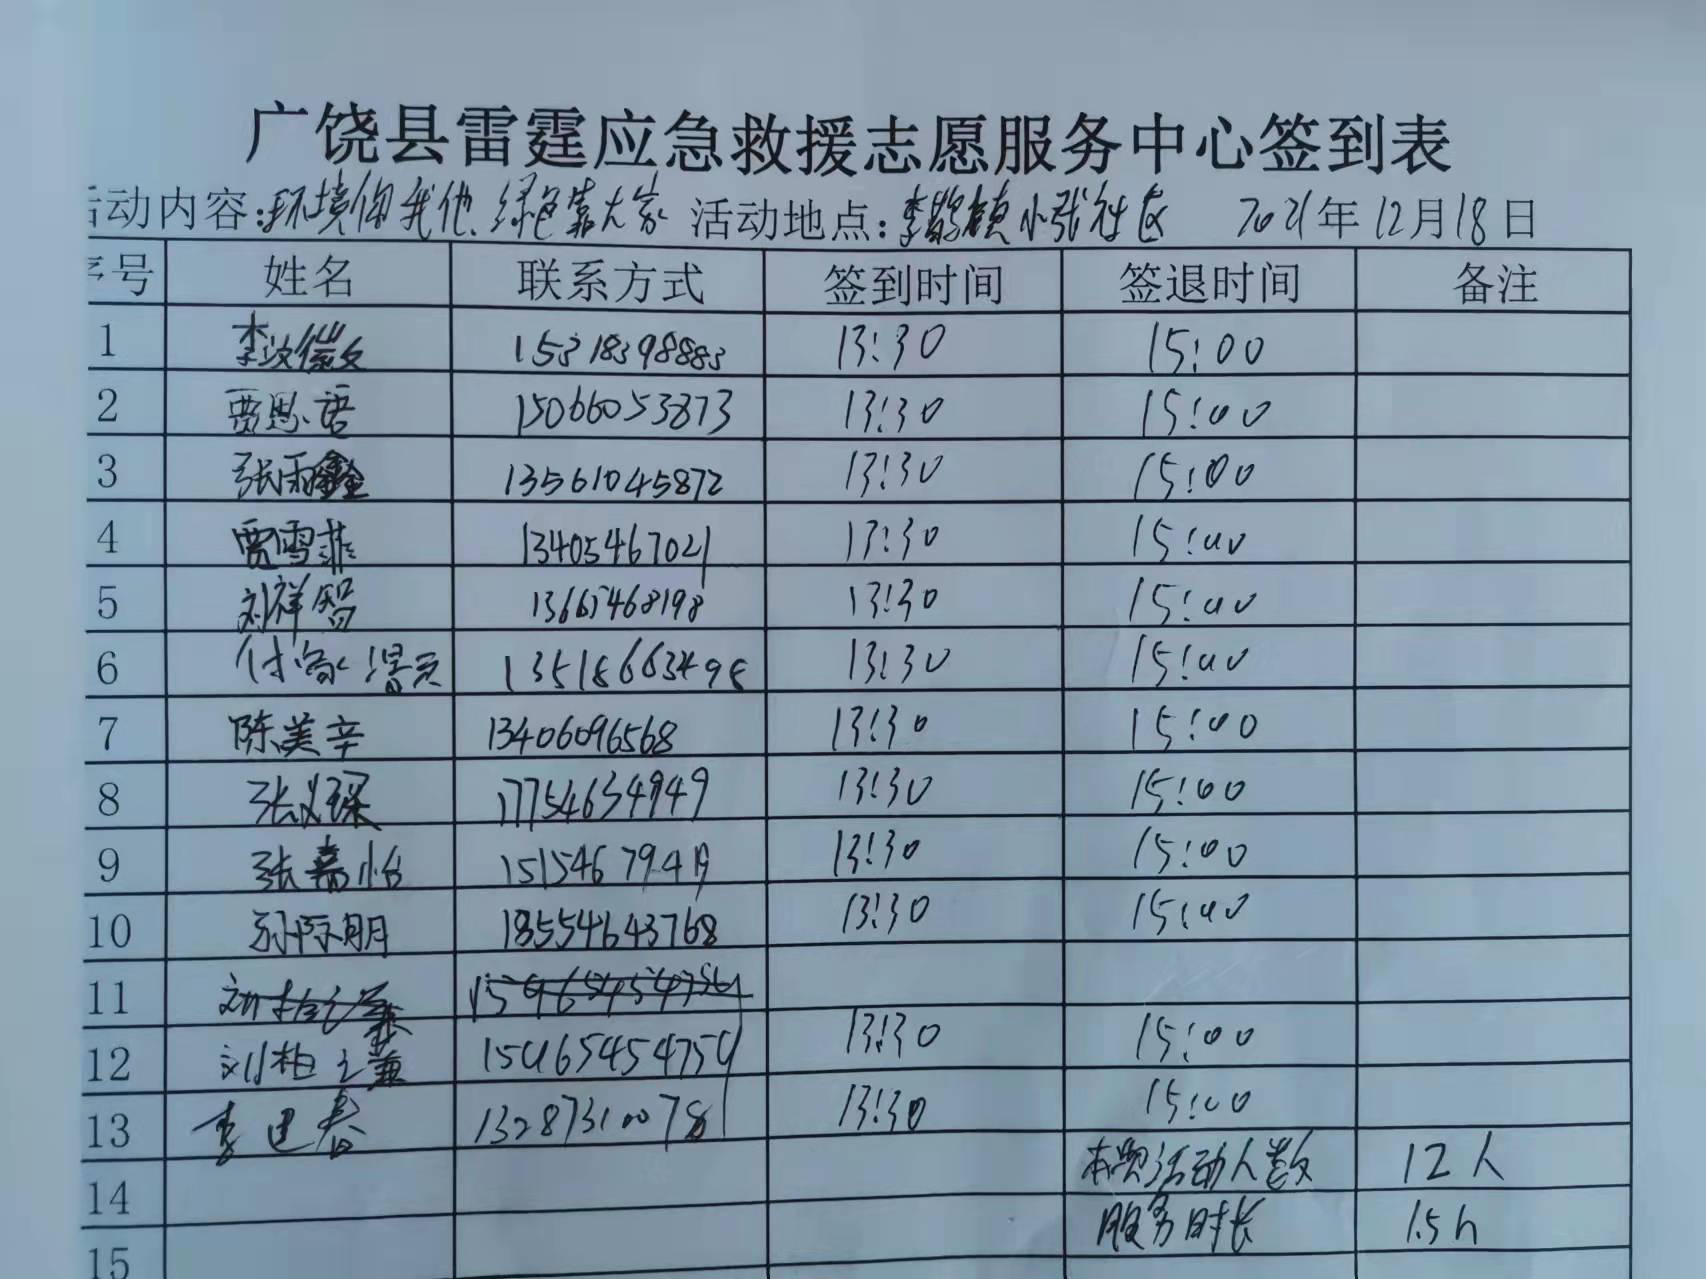 广饶县雷霆应急救援志愿服务中心签到表
活动内容:环境你我他 绿色靠大家 活动地点:李鹊镇小张社区 2021年12月18日
序号 姓名 联系方式 签到时间 签退时间 备注
1 李汶徽 15318398883 13:30 15:00
2 贾思语 15066053873 13:30 15:00
3 张雨鑫 13561045872 13:30 15:00
4 贾雪菲 13405467021 13:30 15:00
5 刘祥智 13:30 15:00
6 付家 13518663498 13:30 15:00
7 陈美辛 13406096568 13:30 15:00
8 张义琛 17754634949 13:30 15:00
9 张嘉怡 13:30 15:00
10 孙际朋 18554643768 13:30 15:00
11
12 刘柏 13:30 15:00
13 李建春 13287310078 13:30 15:00
14 本次活动人数 12人
15 服务时长 1.5h